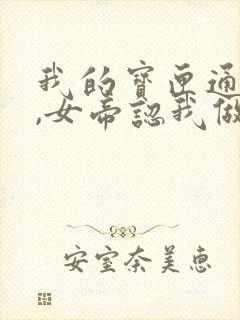 我的寶匣通
,女帝認我做
安室奈美惠